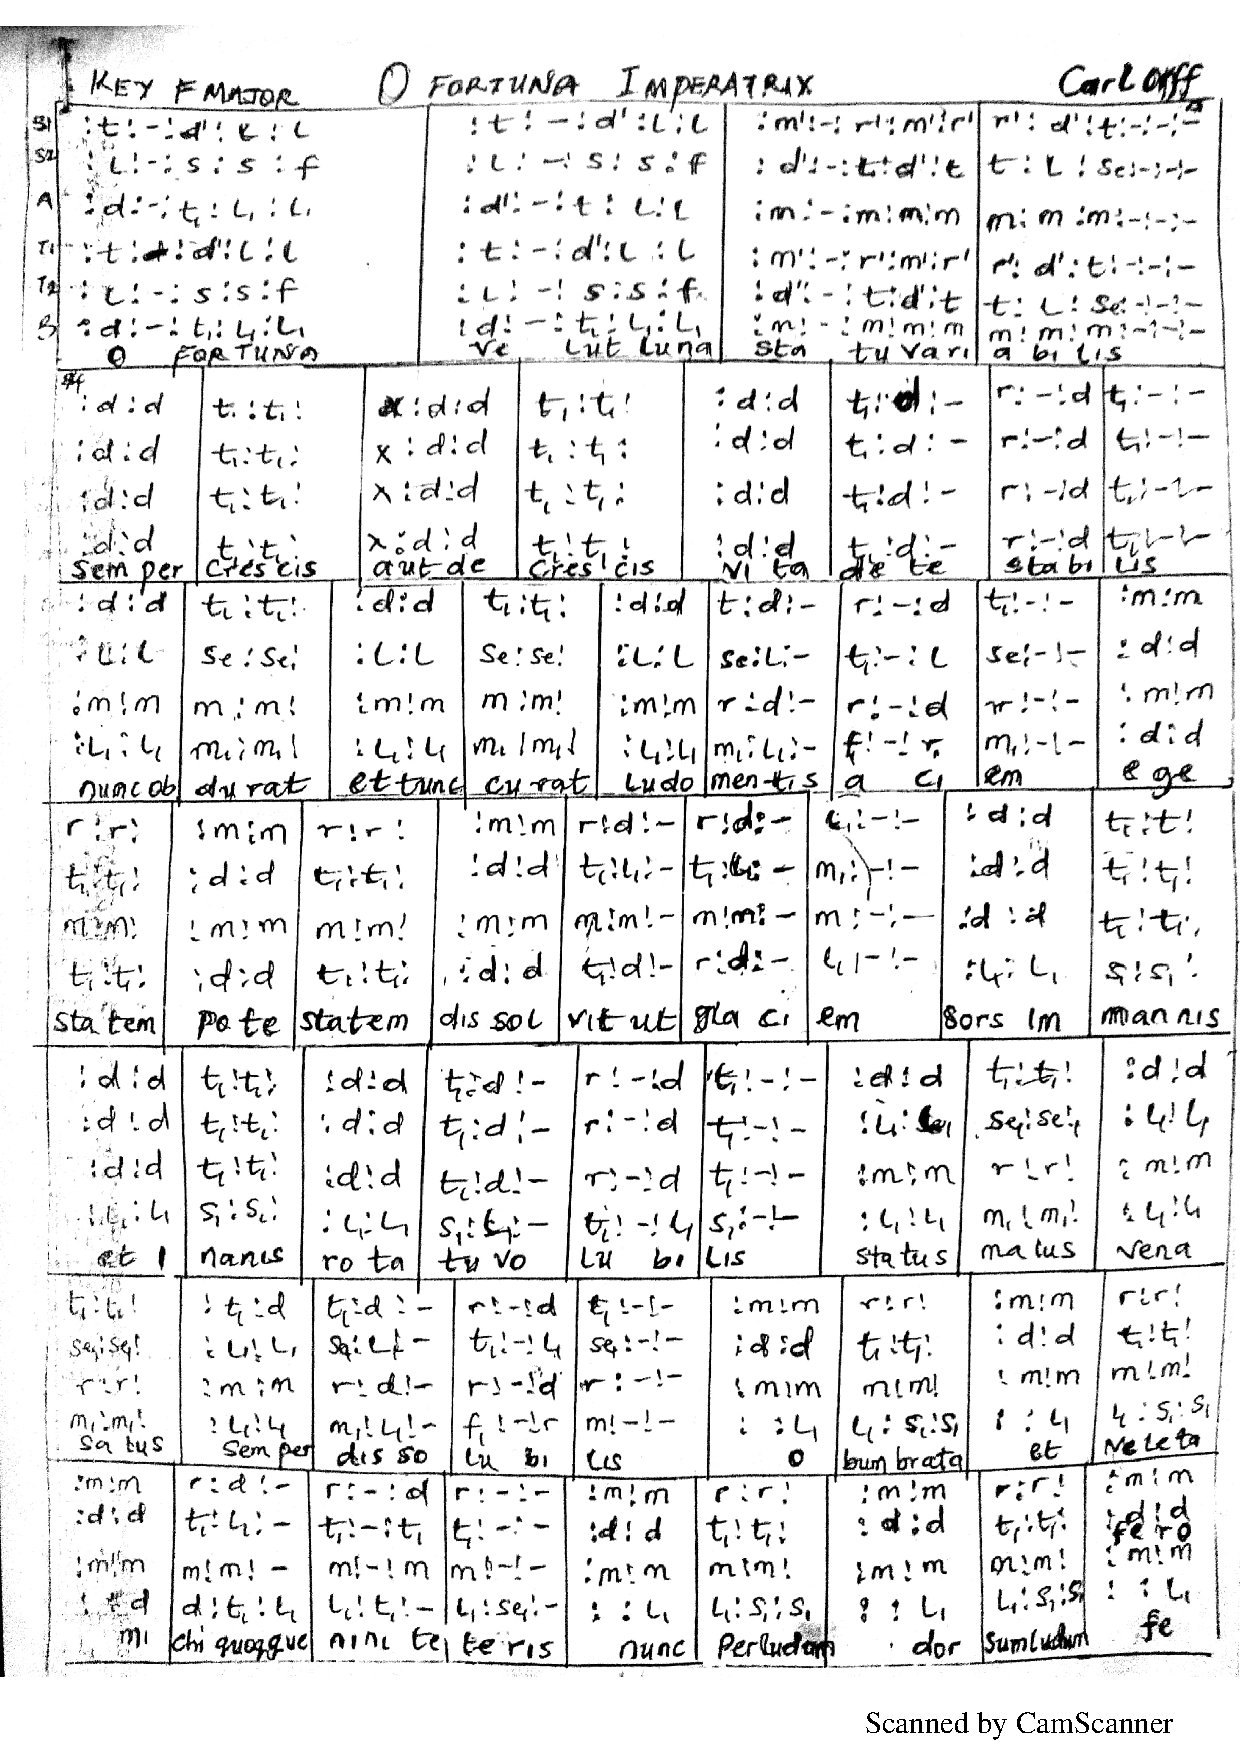 KEY F MAJOR O FORTUNA IMPERATRIX Carl Orff
S1 :t:-:d':L:L :t:-:d':L:L :m':-:r':m':r' r':d':t:-:-:-
S2 :L:-:s:s:f :L:-:s:s:f :d':-:t:d':t t:L:se:-:-:-
A :d:-:t₁:L₁:L₁ :d':-:t:L:L :m:-:m:m:m m:m:m:-:-:-
T1 :t:-:d':L:L :t:-:d':L:L :m':-:r':m':r' r':d':t:-:-:-
T2 :L:-:s:s:f :L:-:s:s:f :d':-:t:d':t t:L:se:-:-:-
B :d:-:t₁:L₁:L₁ :d:-:t₁:L₁:L₁ :m:-:m:m:m m:m:m:-:-:-
O FORTUNA VE LUT LUNA Sta tu vari a bi Lis
:d:d t₁:t₁: x:d:d t₁:t₁: :d:d t₁:d:- r:-:d t₁:-:-
:d:d t₁:t₁: x:d:d t₁:t₁: :d:d t₁:d:- r:-:d t₁:-:-
:d:d t₁:t₁: x:d:d t₁:t₁: :d:d t₁:d:- r:-:d t₁:-:-
:d:d t₁:t₁: x:d:d t₁:t₁: :d:d t₁:d:- r:-:d t₁:-:-
Sem per Cres cis aut de Cres cis Vi ta de te sta bi Lis
:d:d t₁:t₁: :d:d t₁:t₁: :d:d t:d:- r:-:d t₁:-:- :m:m
:L:L se:se: :L:L se:se: :L:L se:L:- t₁:-:L se:-:- :d:d
:m:m m:m: :m:m m:m: :m:m r:d:- r:-:d r:-:- :m:m
:L₁:L₁ m₁:m₁: :L₁:L₁ m₁:m₁: :L₁:L₁ m₁:L₁:- f:-:r, m₁:-:- :d:d
nunc ob du rat et tunc cu rat Ludo mentis a ci em e ge
r:r: :m:m r:r: :m:m r:d:- r:d:- L₁:-:- :d:d t₁:t:
t₁:t₁: :d:d t₁:t₁: :d:d t₁:L₁:- t₁:L₁:- m₁:-:- :d:d t₁:t₁:
m:m: :m:m m:m: :m:m m:m:- m:m:- m:-:- :d:d t₁:t₁:
t₁:t₁: :d:d t₁:t₁: :d:d t₁:d:- r:d:- L₁:-:- :L₁:L₁ s₁:s₁:
sta tem po te statem dis sol vit ut gla ci em Sors Im mannis
:d:d t₁:t₁: :d:d t₁:d:- r:-:d t₁:-:- :d:d t₁:t₁: :d:d
:d:d t₁:t₁: :d:d t₁:d:- r:-:d t₁:-:- se₁:se₁ :L₁:L₁
:d:d t₁:t₁: :d:d t₁:d:- r:-:d t₁:-:- :m:m r:r: :m:m
:L₁:L₁ s₁:s₁: :L₁:L₁ s₁:L₁:- t₁:-:L₁ s₁:-:- :L₁:L₁ m₁:m₁: :L₁:L₁
et I nanis ro ta tu vo Lu bi Lis status malus vena
t₁:t₁: :t₁:d t₁:d:- r:-:d t₁:-:- :m:m r:r: :m:m r:r:
se₁:se₁: :L₁:L₁ se₁:L₁:- t₁:-:L₁ se₁:-:- :d:d t₁:t₁: :d:d t₁:t₁:
r:r: :m:m r:d:- r:-:d r:-:- :m:m m:m: :m:m m:m:
m₁:m₁: :L₁:L₁ m₁:L₁:- f₁:-:r m:-:- : :L₁ L₁:s₁:s₁ : :L₁ L₁:s₁:s₁
Sa tus Semper dis so Lu bi Lis O bumbrata et Ve Leta
:m:m r:d:- r:-:d r:-:- :m:m r:r: :m:m r:r: :m:m
:d:d t₁:L₁:- t₁:-:t₁ t₁:-:- :d:d t₁:t₁: :d:d t₁:t₁: :d:d
fe ro
:m:m m:m:- m:-:m m:-:- :m:m m:m: :m:m m:m: :m:m
: :d d:t₁:L₁ L₁:t₁:- L₁:se₁:- : :L₁ L₁:s₁:s₁ : :L₁ L₁:s₁:s₁ : :L₁
mi chi quoqque nini te teris nunc Perludum dor Sumludum fe
Scanned by CamScanner